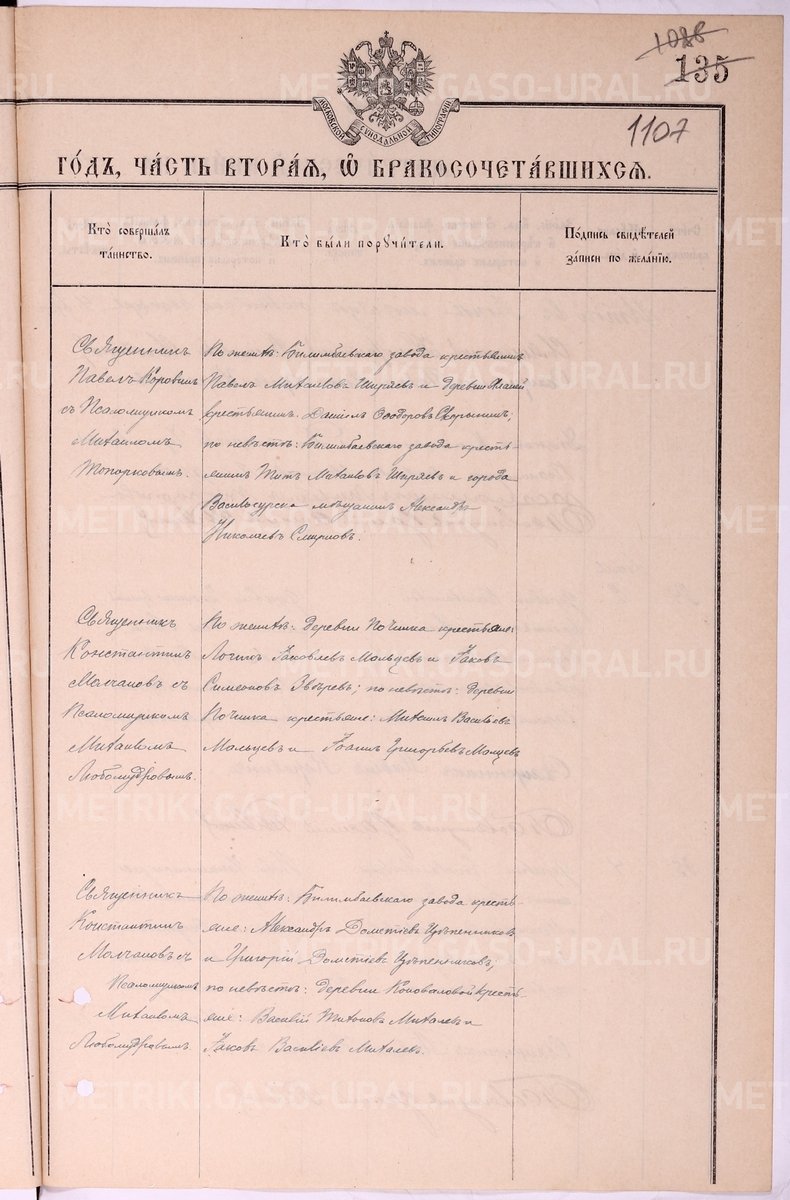 1026
135
1107
МОСКОВСКОЙ СѴНОДАЛЬНОЙ ТИПОГРАФІИ
ГО́ДЪ, ЧА́СТЬ ВТОРА́Я, Ѽ БРАКОСОЧЕТА́ВШИХСЯ.
Кто̀ соверша́лъ
та́инство.
Кто̀ бы́ли порꙋчи́тели.
По́дпись свидѣ́телей
за́писи по жела́нію.
Священникъ
Павелъ Коровинъ
съ Псаломщикомъ
Михаиломъ
Топорковымъ.
По женихѣ: Билимбаевскаго завода крестьянинъ
Павелъ Михаиловъ Ширяевъ и деревни
крестьянинъ Данiилъ Ѳеодоровъ
по невѣстѣ: Билимбаевскаго завода кресть-
янинъ Титъ Михаиловъ Ширяевъ и города
Васильсурска мѣщанинъ Александръ
Николаевъ Смирновъ.
Священникъ
Константинъ
Молчановъ съ
Псаломщикомъ
Михаиломъ
Любомудровымъ.
По женихѣ: деревни Починка крестьяне:
Логинъ Яковлевъ Мальцевъ и Яковъ
Симеоновъ Звѣревъ; по невѣстѣ: деревни
Починка крестьяне: Михаилъ Васильевъ
Мальцевъ и Іоаннъ Григорьевъ Мальцевъ
Священникъ
Константинъ
Молчановъ съ
Псаломщикомъ
Михаиломъ
Любомудровымъ.
По женихѣ: Билимбаевскаго завода кресть-
яне: Александръ Дометіевъ Цѣпенниковъ
и Григорій Дометіевъ Цѣпенниковъ;
по невѣстѣ: деревни Коноваловой кресть-
яне: Василій Тихоновъ Михалевъ и
Яковъ Василіевъ Михалевъ.
METRIKI.GASO-URAL.RU